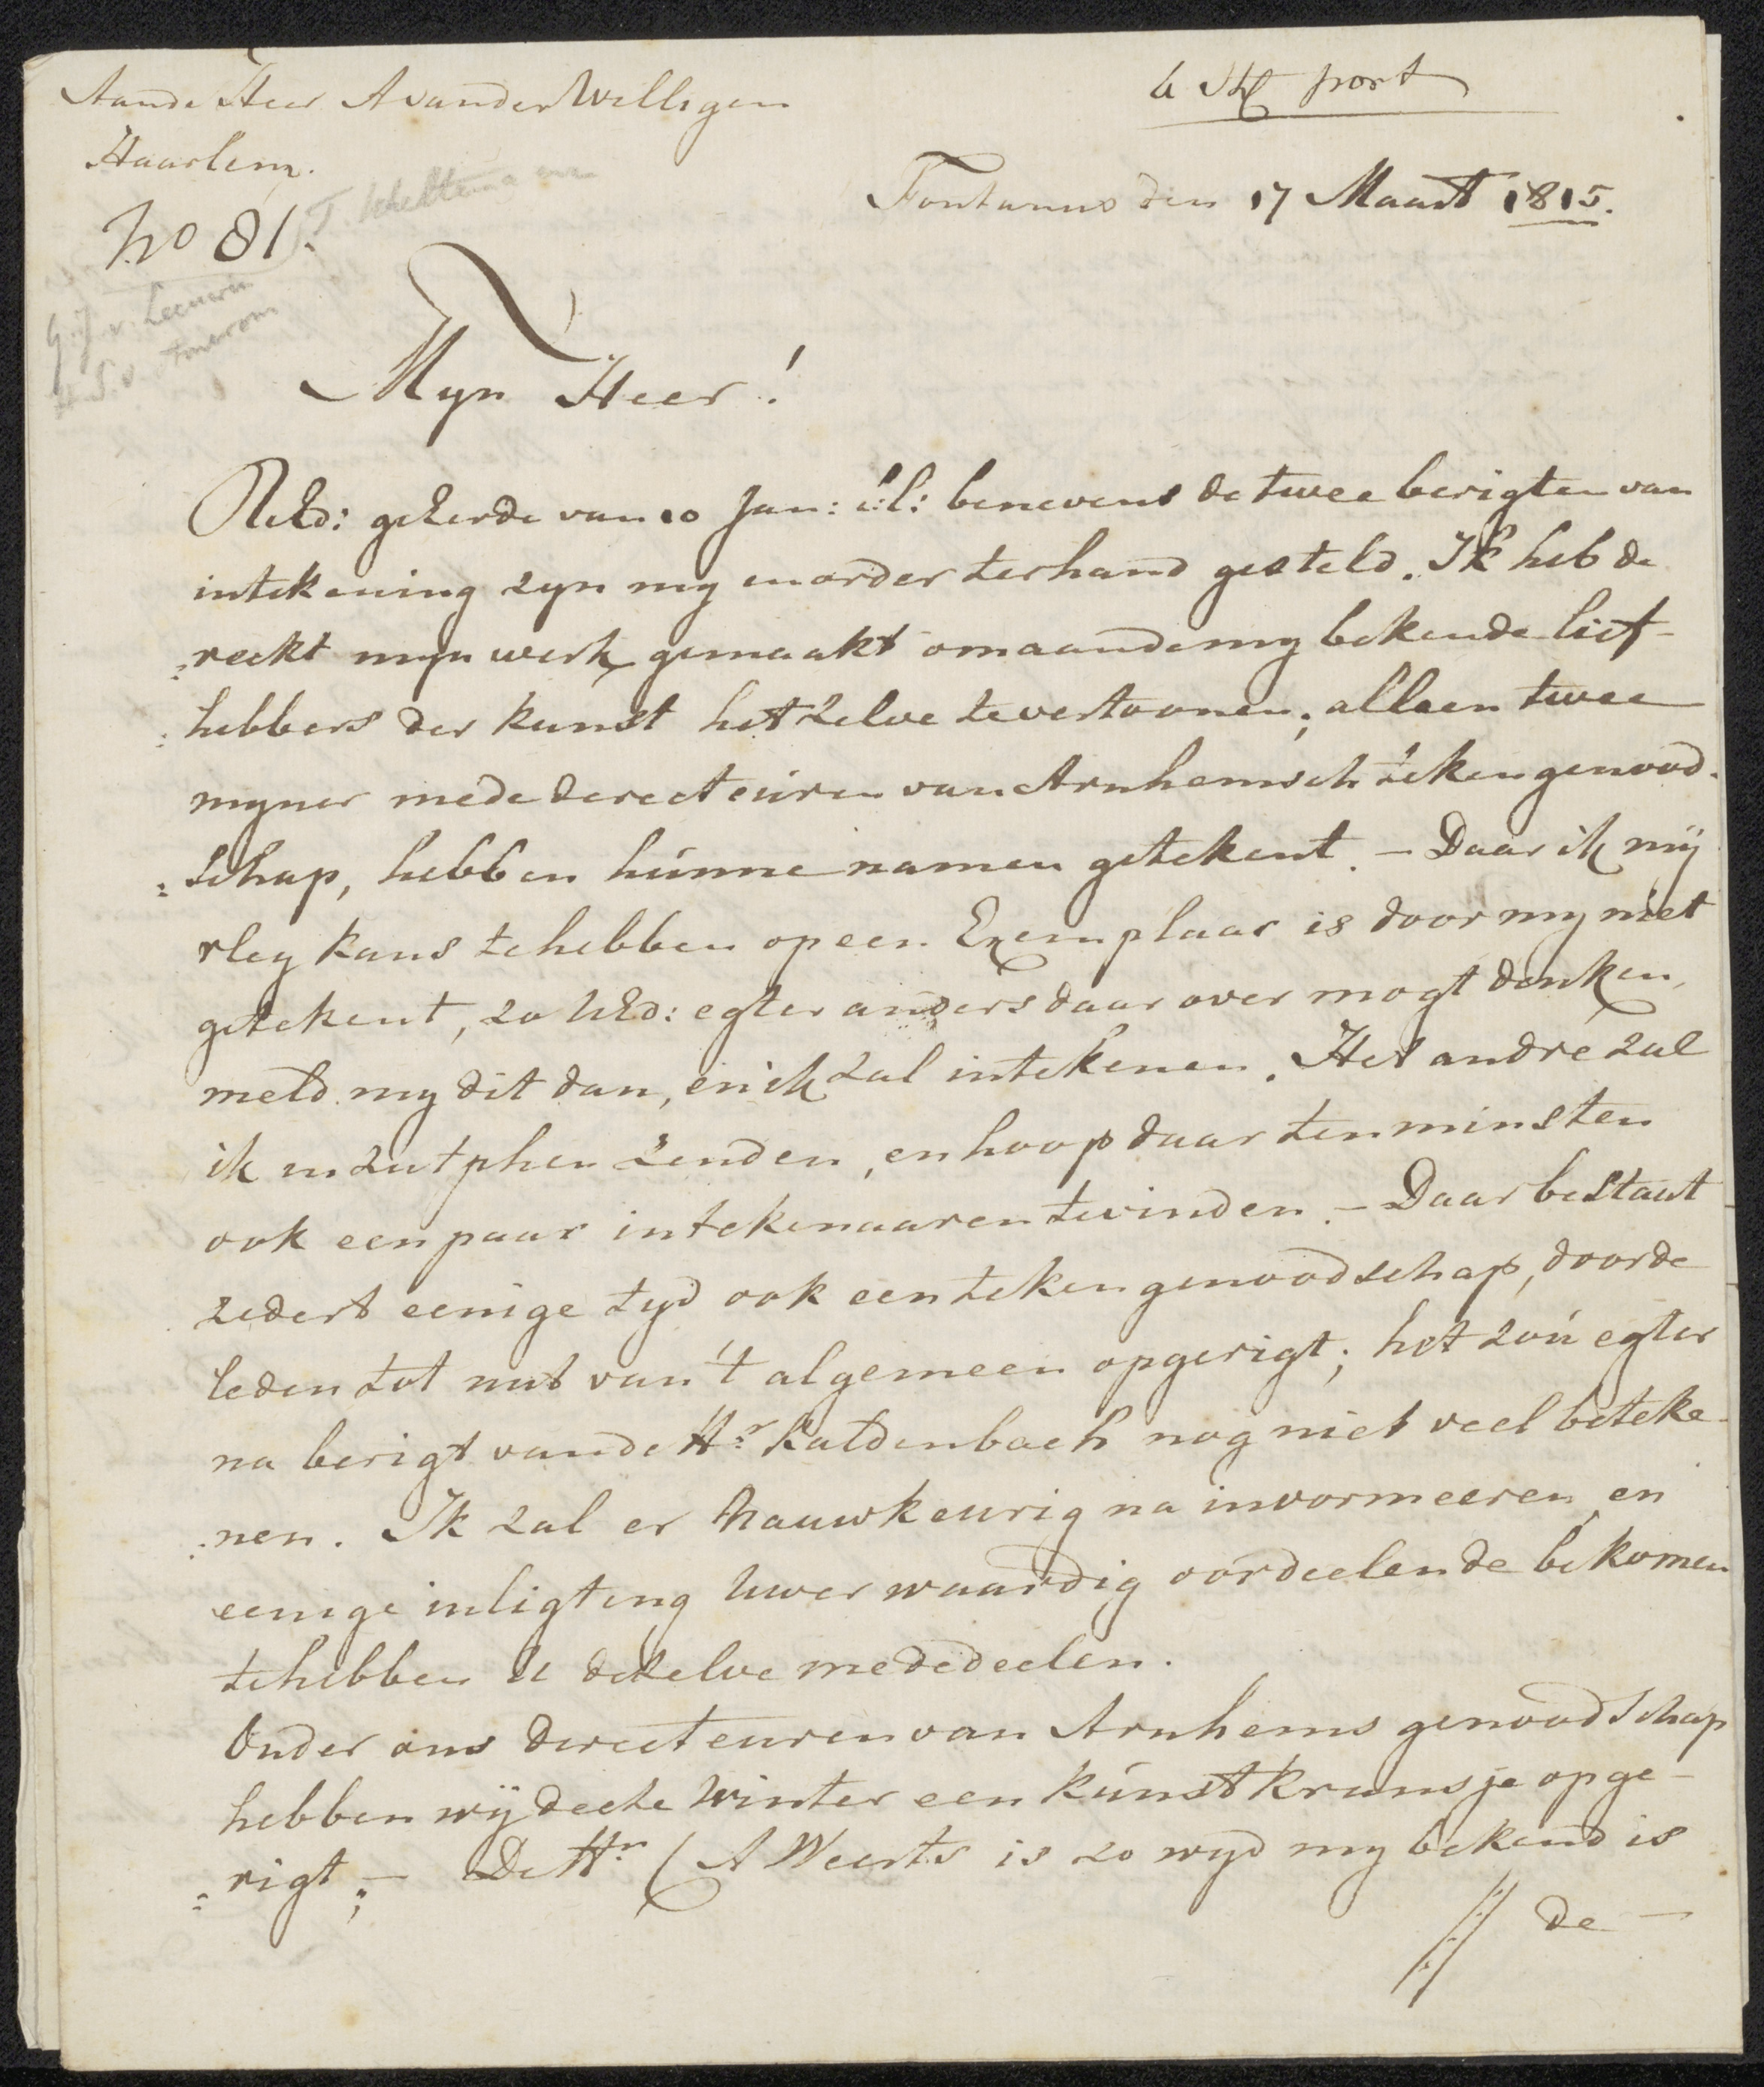 Aan de Heer A van der Willigen
Haarlem.
6 St port
No 81.
Fontanus den 17 Maart 1815.
G. J. v. Leeuwen
Myn Heer!
UEd: geEerde van 10 Jan: l:l: benevens de twee berigten van
intekening zyn my in order ter hand gesteld. Ik heb de
reckt myn werk gemaakt om aan de my bekende lief-
hebbers der kunst het zelve te vertoonen; alleen twee
myner mede derecteuren van Arnhemsch teken genood-
schap, hebben hunne namen getekent. — Daar ik mÿ
vley kans te hebben op een Exemplaar is door my niet
getekent, zo UEd: egter anders daar over mogt denken,
meld my dit dan, en ik zal intekenen. Het andre zal
ik in Zutphen zenden, en hoop daar ten minsten
ook een paar intekenaaren te vinden. — Daar bestaat
zedert eenige tyd ook een teken genoodschap, door de
leden tot nut van 't algemeen opgerigt; het zou egter
na berigt van de Hr. Kaldenbach nog niet veel beteke-
nen. Ik zal er nauwkeurig na invormeeren en
eenige inligting Uwer waardig oordeelende bekomen
te hebben U dezelve mededeelen.
Onder ons Directeuren van Arnhems genoodschap
hebben wÿ deeze winter een kunst kransje opge-
rigt; — De Hr. (A Weerts is zo wyd my bekend is
// de —